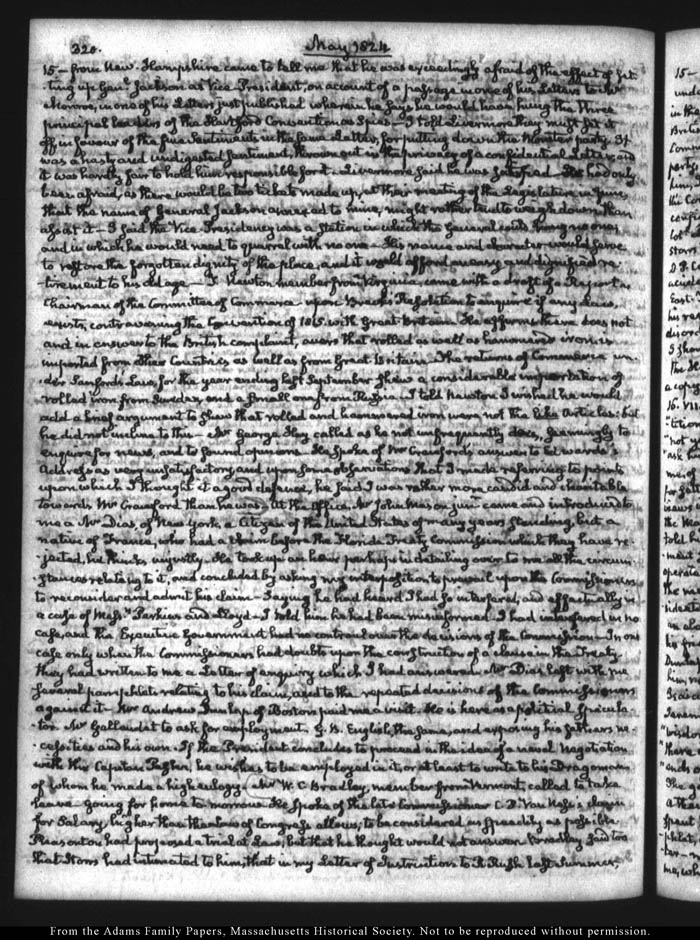 320.
May 1824
15 — from New-Hampshire came to tell me that he was exceedingly afraid of the effect of set-
-ting up Genl. Jackson as Vice-President, on account of a passage in one of his Letters to Mr
Monroe, in one of his Letters just published wherein he says he would have hung the three
principal leaders of the Hartford Convention as Spies — I told Livermore they must set it
off in favour of the fine Sentiments in the same Letter, for putting down the Monster party. It
was a hasty and undigested sentiment, thrown out in the privacy of a confidential Letter, and
it was hardly fair to hold him responsible for it. Livermore said he was satisfied — He had only
been afraid, as there would be two tickets made up, at their meeting of the Legislature in June,
that the name of General Jackson annexed to mine, might rather tend to weigh down than
assist it — I said the Vice-Presidency was a Station in which the General could hang no one,
and in which he would need to quarrel with no one — His name and character would serve
to restore the forgotten dignity of the place, and it would afford an easy and dignified re-
-tirement to his old age — T. Newton member from Virginia, came with a draft of a Report as
Chairman of the Committee of Commerce — upon Resolution to enquire if any Law,
exists, contravening the Convention of 1815 with Great-Britain. He affirms there does not
and in answer to the British complaint, avers that rolled as well as hammered iron is
imported from other Countries as well as from Great Britain. The returns of Commerce un-
-der Sanford's Law, for the year ending last September shew a considerable importation of
rolled iron from Sweden, and a small one from Russia. I told Newton I wished he would
add a brief argument to shew that rolled and hammered iron were not the like Articles: but
he did not incline to this — Mr George Hay called as he not unfrequently does, seemingly to
enquire for news, and to sound opinions. He spoke of Mr Crawford's answer to Edwards's
Address as very unsatisfactory, and upon some observations that I made referring to points
upon which I thought it a good defence, he said I was rather more candid and charitable
towards Mr Crawford than he was. At the Office, Mr John Mason junr. came and introduced to
me a Mr Dias, of New York, a Citizen of the United States of many years standing, but a
native of France, who had a claim before the Florida Treaty Commission which they have re-
-jected, he thinks unjustly. He took up an hour perhaps in detailing over to me all the circum-
-stances relating to it, and concluded by asking my interposition, to prevail upon the Commissioners
to reconsider and admit his claim — Saying he had heard I had so interfered, and effectually in
a case of Messrs. Perkins and Lloyd — I told him he had been misinformed. I had interfered in no
case, and the Executive Government had no controul over the decisions of the Commission. In one
case only when the Commissioners had doubts upon the construction of a clause in the Treaty
they had written to me a Letter of enquiry which I had answered. Mr Dias left with me
several pamphlets relating to his claim, and to the repeated decisions of the Commissioners
against it — Mr Andrew Dunlap of Boston paid me a visit. He is here as a political specula-
-tor. Mr Gallaudet to ask for employment. G. B. English, the same, and exposing his father's ne-
-cessities and his own. If the President concludes to proceed in the idea of a naval Negotiation
with the Capitan Pasha, he wishes to be employed in it, or at least to write to his Dragoman
of whom he made a high eulogy — Mr W. C. Bradley, member from Vermont, called to take
leave — going for home to-morrow. He spoke of the late Commissioner C. P. Van Ness's claim
for Salary, higher than the Law of Congress allows; to be considered as speedily as possible.
Pleasonton had proposed a trial at Law, but that he thought would not answer. Bradley said too
that Storrs had intimated to him, that in my Letter of Instructions to R. Rush last Summer,
From the Adams Family Papers, Massachusetts Historical Society. Not to be reproduced without permission.